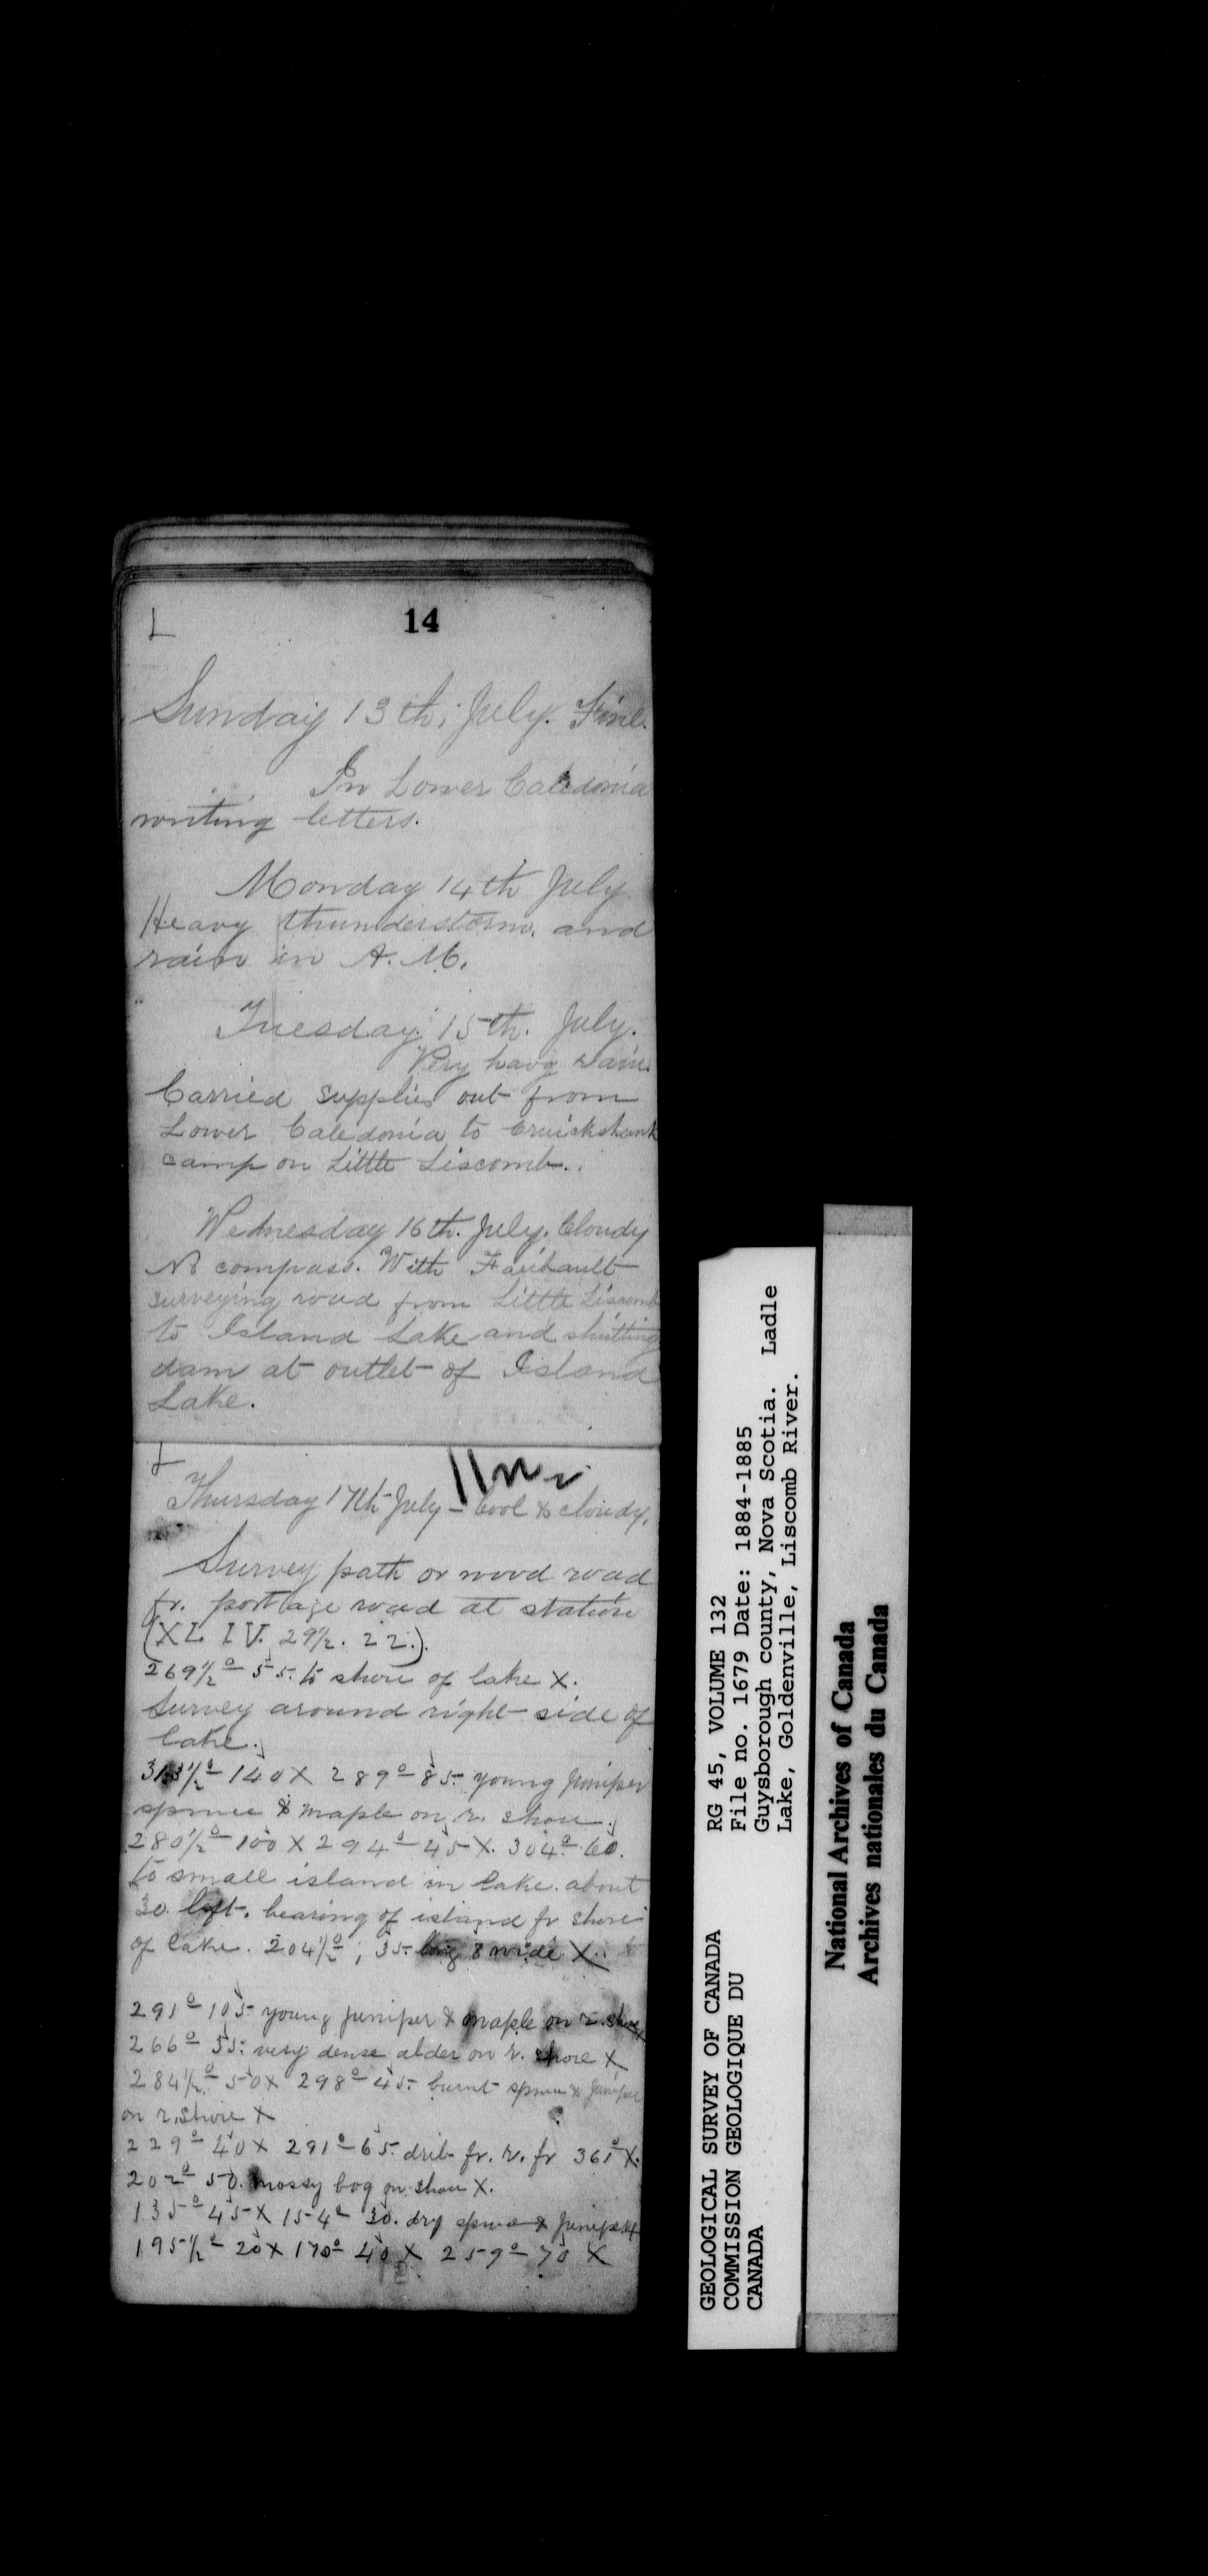 14
Sunday 13th. July. Fine.
In Lower Caledonia
writing letters.
Monday 14th July
Heavy thunderstorm. and
rain in A. M.
Tuesday 15th. July.
Very havy rain.
Carried supplies out from
Lower Caledonia to Cruickshank
camp on Little Liscomb.
Wednesday 16th. July. Cloudy
No compass. With Faribault
surveying road from Little Liscomb
to Island Lake and shutting
dam at outlet of Island
Lake.
Thursday 17th July – Cool & cloudy.
Survey path or wood road
fr. portage road at station
(XL IV. 29½. 22.).
269½° – 55. to shore of lake X.
Survey around right side of
lake.
313½° – 140 X 289° – 85. young juniper
spruce & maple on r. shore.
280½° – 100 X 294° – 45 X. 304° 60.
to small island in lake. about
30 left. bearing of island fr shore
of lake. 204½°, 35. long 8 wide X.
291° – 105. young juniper & maple on r. shore X
266° 55. very dense alder on r. shore X
284½° – 50 X 298° – 45. burnt spruce & juniper
on r. shore X
229° – 40 X 291° – 65. drib fr. r. fr 361° X.
202° 50. mossy bog on shore X.
135° – 45 X 154° 30. dry spruce & juniper X
195½° – 20 X 170° 40 X 259° – 70 X
GEOLOGICAL SURVEY OF CANADA
COMMISSION GEOLOGIQUE DU
CANADA
RG 45, VOLUME 132
File no. 1679 Date: 1884-1885
Guysborough county, Nova Scotia. Ladle
Lake, Goldenville, Liscomb River.
National Archives of Canada
Archives nationales du Canada